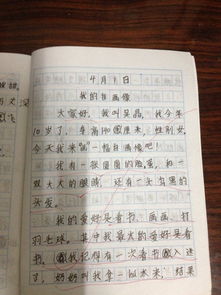 4月1日
我的自画像
大家好，我叫吴晶，我今年
10岁了，车高140厘米，性别女，
今天我来画一幅自画像吧！
我有一张圆圆的脸蛋，和一
双大大的眼睛，还有一头乌黑的
头发。
我的爱好是看书、画画、打
羽毛球。其中我最大的爱好是看
书，我记得有一次看书入迷
了，奶奶叫我拿一些水来，结果